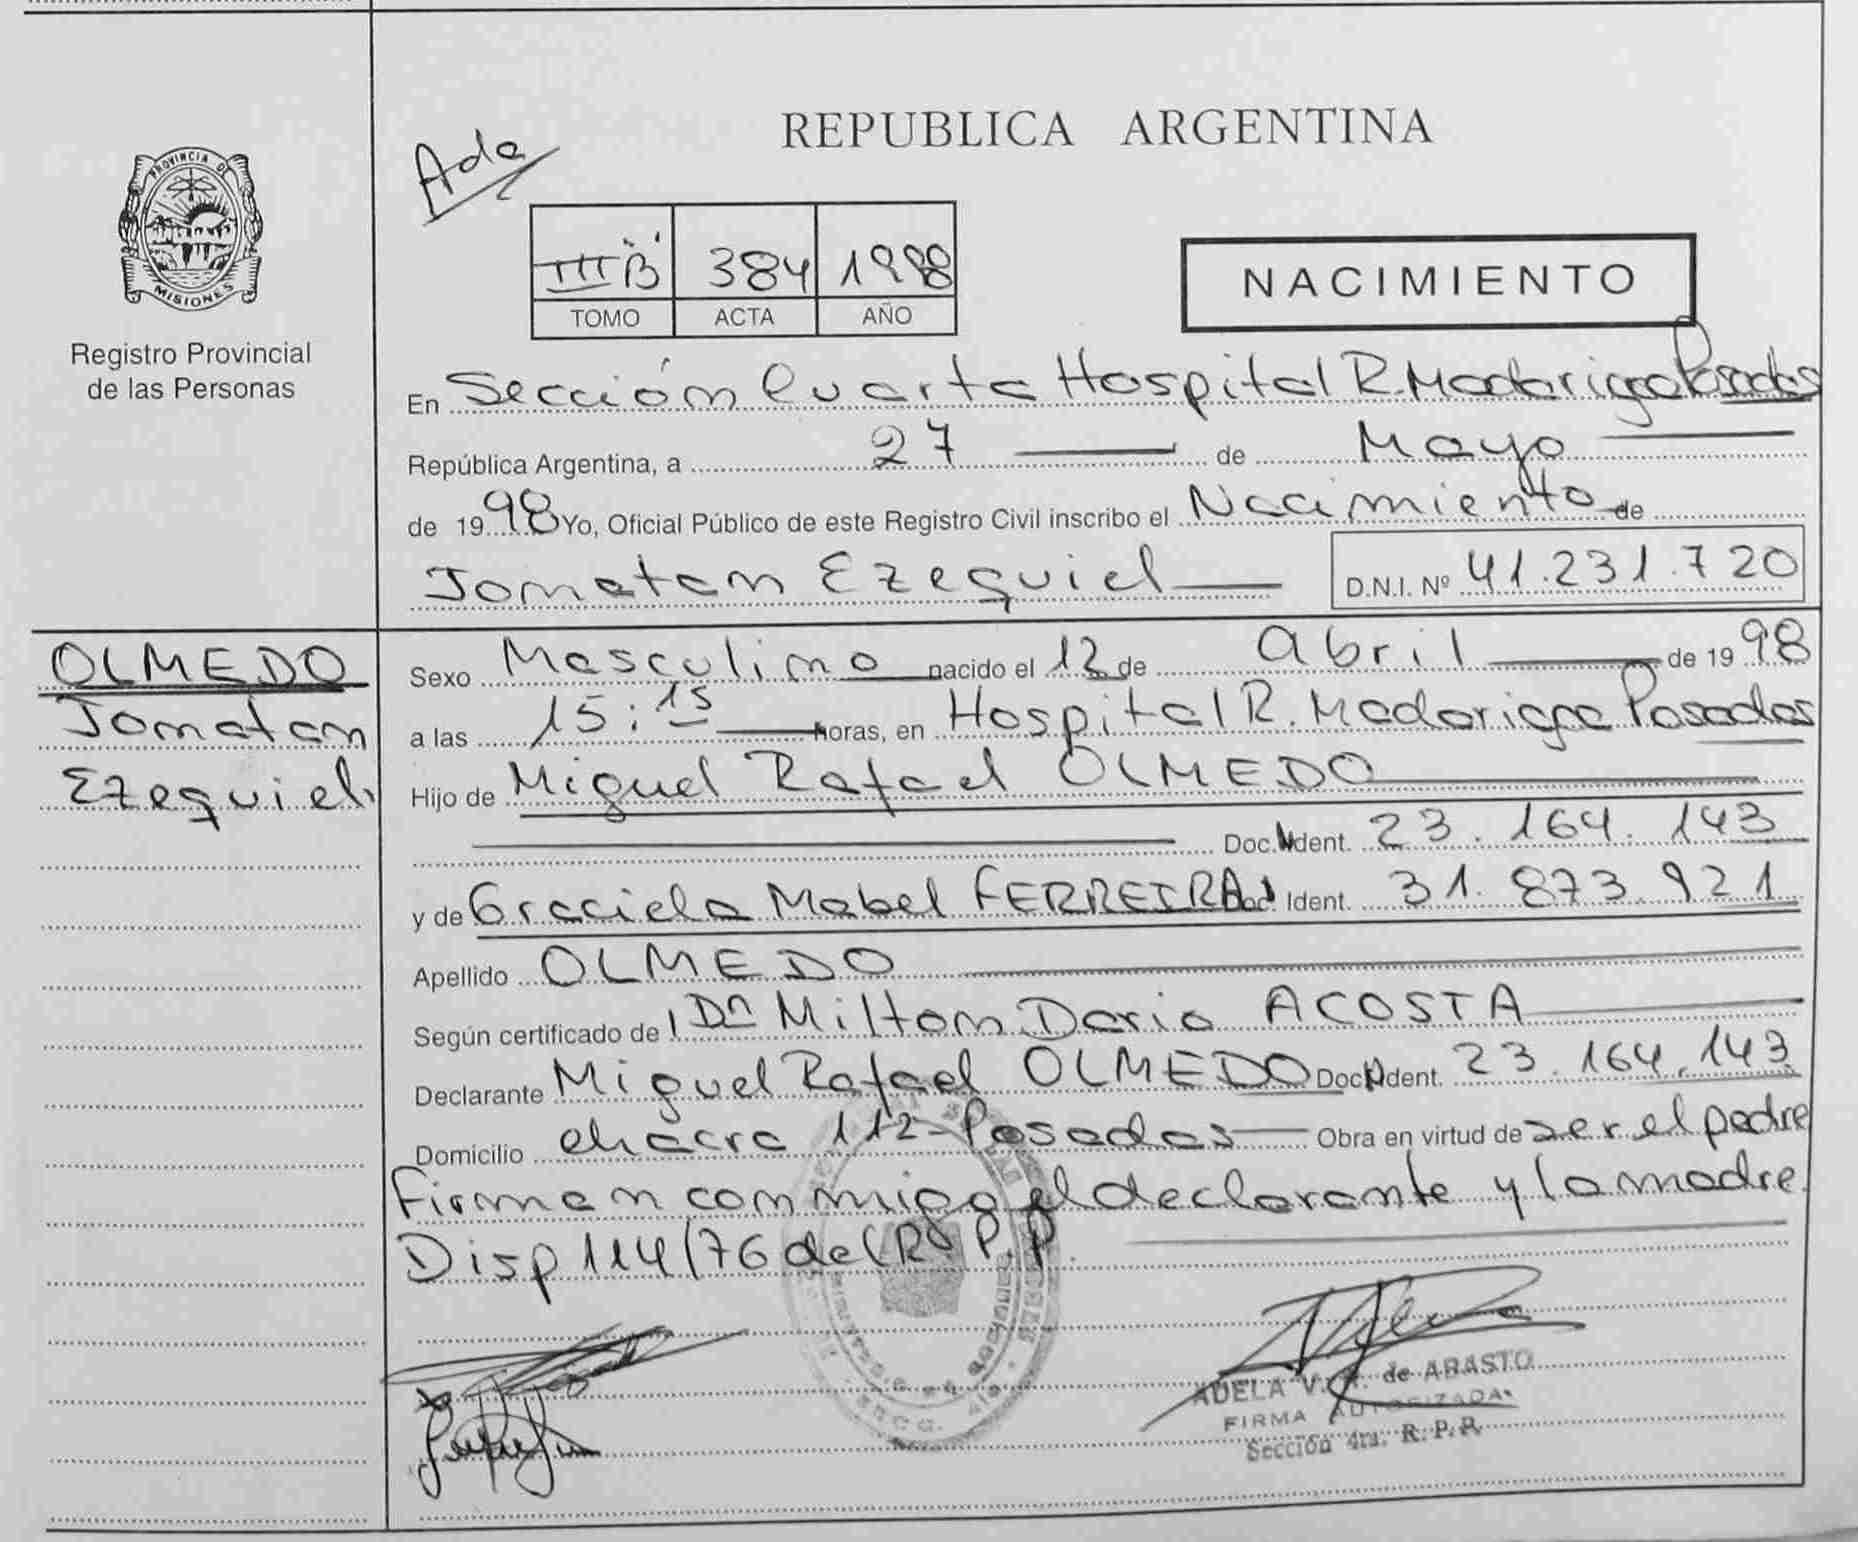 PROVINCIA DE
MISIONES
Registro Provincial
de las Personas
Ada
REPUBLICA ARGENTINA
III "B" 384 1998
TOMO ACTA AÑO
NACIMIENTO
En Sección Cuarta Hospital R. Madariaga Posadas
República Argentina, a 27 de Mayo
de 1998 Yo, Oficial Público de este Registro Civil inscribo el Nacimiento de
Jonatan Ezequiel D.N.I. Nº 41.231.720
OLMEDO
Jonatan
Ezequiel
Sexo Masculino nacido el 12 de Abril de 1998
a las 15:15 horas, en Hospital R. Madariaga Posadas
Hijo de Miguel Rafael OLMEDO
Doc. Ident. 23.164.143
y de Graciela Mabel FERREIRA Doc. Ident. 31.873.921
Apellido OLMEDO
Según certificado de Dn Milton Dario ACOSTA
Declarante Miguel Rafael OLMEDO Doc. Ident. 23.164.143
Domicilio chacra 112-Posadas Obra en virtud de ser el padre
Firman conmigo el declarante y la madre.
Disp 114/76 del R.P.P.
ADELA V. de ABASTO
FIRMA AUTORIZADA
Sección 4ta. R.P.P.